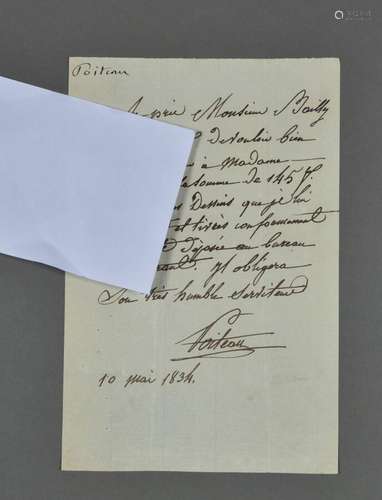 Poiteau
prie Monsieur Bailly
de vouloir bien
à Madame —
la somme de 145 f.
Dessins que je lui
et livrés conformément
déposée au bureau
Il obligera
Son très humble Serviteur
Poiteau
10 mai 1834.